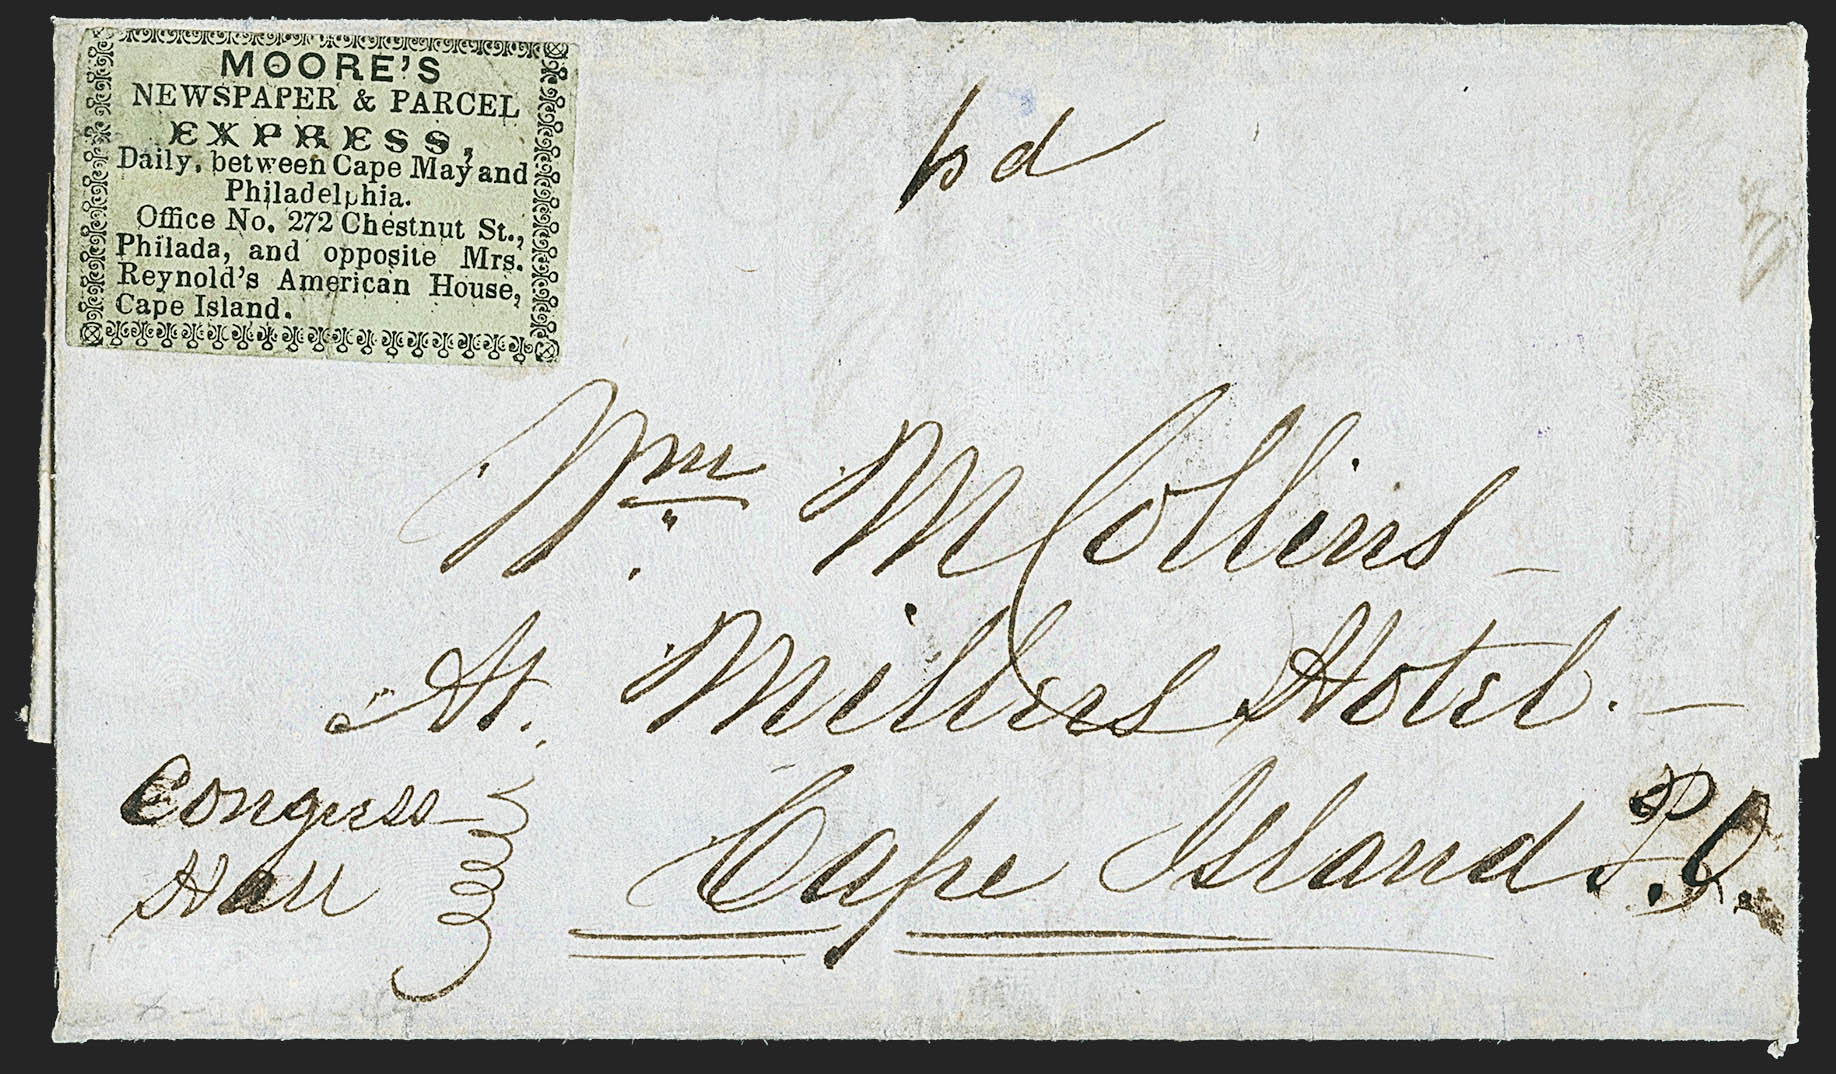 MOORE'S
NEWSPAPER & PARCEL
EXPRESS,
Daily, between Cape May and
Philadelphia.
Office No. 272 Chestnut St.,
Philada, and opposite Mrs.
Reynold's American House,
Cape Island.
pd
Wm M Collins
At. Millers Hotel.
Congress
Hall
Cape Island P.O.